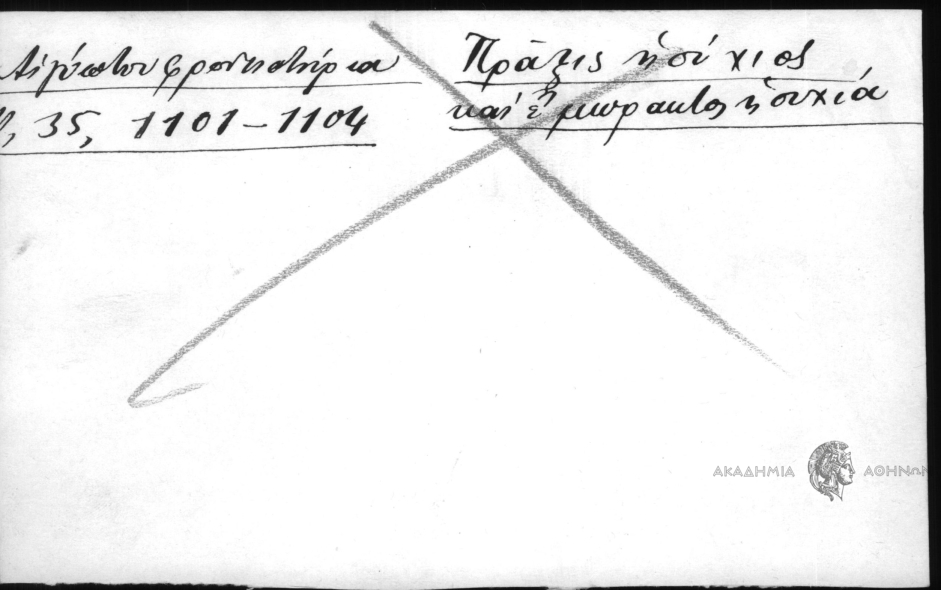 Αἰγύπτου φροντιστήρια
35, 1101-1104
Πρᾶξις ἡσύχιος
καὶ ἔμπρακτος ἡσυχία
ΑΚΑΔΗΜΙΑ ΑΘΗΝΩΝ